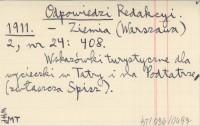 Odpowiedzi Redakcyi.
1911. – Ziemia (Warszawa)
2, nr 24: 408.
Wskazówki turystyczne dla
wycieczki w Tatry i na Podtatrze,
(zwłaszcza Spisz).
MT